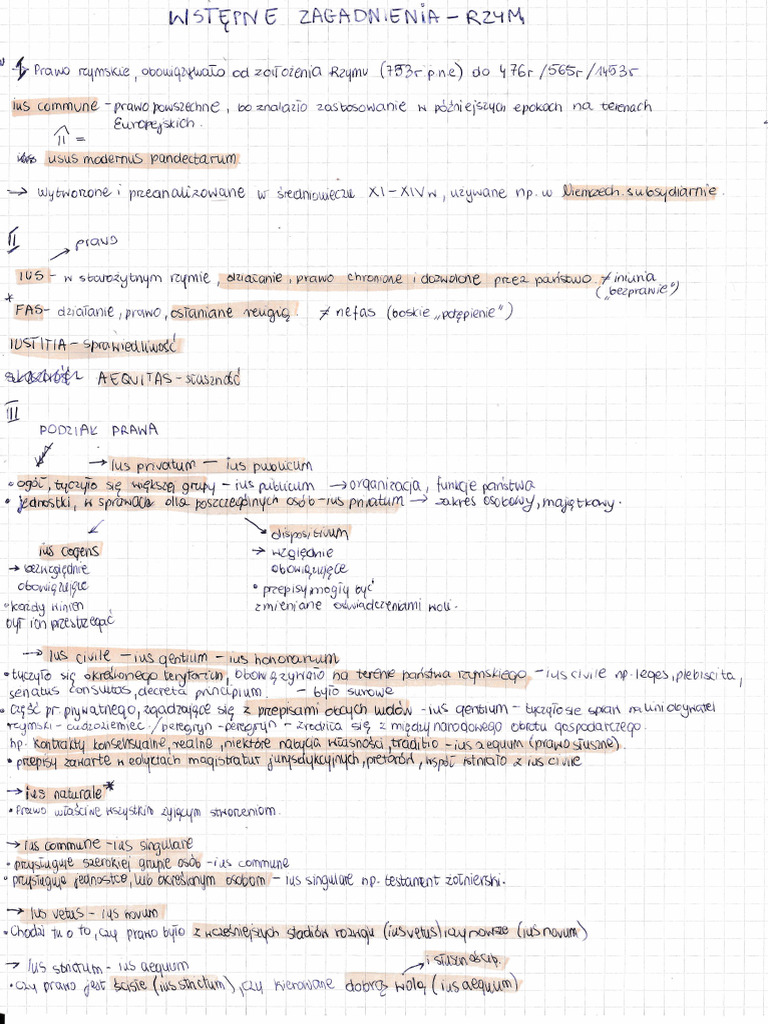 WSTĘPNE ZAGADNIENIA - RZYM
Prawo rzymskie, obowiązywało od założenia Rzymu (753r p.n.e) do 476r /565r/1453r
ius commune - prawo powszechne, bo znalazło zastosowanie w późniejszych epokach na terenach
Europejskich.
=
usus modernus pandectarum
→ wytworzone i przeanalizowane w średniowieczu XI-XIV w, używane np. w Niemczech subsydiarnie.
II
prawo
IUS - w starożytnym rzymie, działanie, prawo chronione i dozwolone przez państwo. ≠ iniuria
("bezprawie")
* FAS - działanie, prawo, osłaniane religią. ≠ nefas (boskie "potępienie")
IUSTITIA - sprawiedliwość
AEQUITAS - słuszność
III
PODZIAŁ PRAWA
→ Ius privatum - ius publicum
• ogół, tyczyło się większej grupy - ius publicum → organizacja, funkcje państwa
• jednostki, w sprawach dla poszczególnych osób - ius privatum → zakres osobowy, majątkowy.
dispositivum
ius cogens → względnie
→ bezwzględnie obowiązujące
obowiązujące • przepisy mogły być
• każdy winien zmieniane oświadczeniami woli.
był ich przestrzegać
→ Ius civile - ius gentium - ius honorarium
• tyczyło się określonego terytorium, obowiązywało na terenie państwa rzymskiego - ius civile np. leges, plebiscita,
senatus consultos, decreta principium. - było surowe
• część pr. prywatnego, zgadzające się z przepisami obcych ludów - ius gentium - tyczyło się spraw na lini obywatel
rzymski - cudzoziemiec / peregryn - peregryn - zrodziła się z międzynarodowego obrotu gospodarczego.
np. kontrakty konsensualne, realne, niektóre nabycia własności, traditio - ius aequum (prawo słuszne).
• przepisy zawarte w edyktach magistratur jurysdykcyjnych, pretorów, współistniało z ius civile
→ ius naturale *
• Prawo właściwe wszystkim żyjącym stworzeniom.
→ ius commune - ius singulare
• przysługuje szerokiej grupie osób - ius commune
• przysługuje jednostce, lub określonym osobom - ius singulare np. testament żołnierski.
→ Ius vetus - ius novum
• Chodzi tu o to, czy prawo było z wcześniejszych stadiów rozwoju (ius vetus) czy nowsze (ius novum)
→ Ius strictum - ius aequum i słusznością.
• czy prawo jest ścisłe (ius strictum), czy kierowane dobrą wolą (ius aequum)